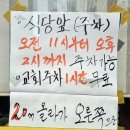 식당앞 (주차)
오전 11시부터 오후
2시까지 주차가능
교회주차 1시간 무료
20m 올라가 오른쪽으로